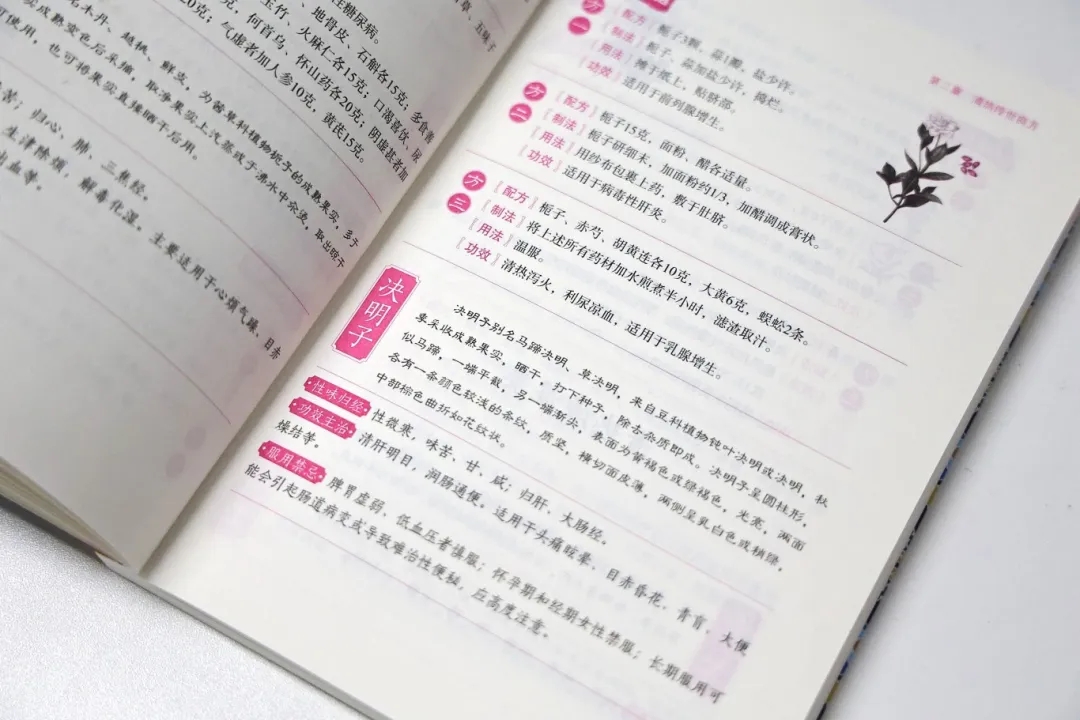 住糖尿病。
、地骨皮、石斛各15克；多食善
玉竹、火麻仁各15克；口渴喜饮，尿
克，何首乌、怀山药各20克；阴虚甚者加
20克；气虚者加人参10克，黄芪15克。
名木丹、越桃、鲜支，为茜草科植物栀子的成熟果实，多于
实成熟变色后采摘，取净果实上汽蒸或于沸水中余烫，取出晾干
使用，也可待果实直接晒干后用。
苦；归心、肺、三焦经。
生津除烦，解毒化湿，主要适用于心烦气躁、目赤
出血等。
第二章 遗损传世国方
方一
【配方】栀子3颗，蒜1瓣，盐少许。
【制法】栀子、蒜加盐少许，捣烂。
【用法】摊于纸上，贴脐部。
【功效】适用于前列腺增生。
方二
【配方】栀子15克，面粉、醋各适量。
【制法】栀子研细末，加面粉约1/3，加醋调成膏状。
【用法】用纱布包裹上药，敷于肚脐。
【功效】适用于病毒性肝炎。
方三
【配方】栀子、赤芍、胡黄连各10克，大黄6克，蜈蚣2条。
【制法】将上述所有药材加水煎煮半小时，滤渣取汁。
【用法】温服。
【功效】清热泻火，利尿凉血，适用于乳腺增生。
决明子
决明子别名马蹄决明、草决明，来自豆科植物钝叶决明或决明，秋
季采收成熟果实，晒干，打下种子，除去杂质即成。决明子呈圆柱形，
似马蹄，一端平截，另一端渐尖，表面为黄褐色或绿褐色，光亮，两面
各有一条颜色较浅的条纹，质坚，横切面皮薄，两侧呈乳白色或柚绿，
中部棕色曲折如花纹状。
性味归经 性微寒，味苦、甘、咸；归肝、大肠经。
功效主治 清肝明目，润肠通便。适用于头痛眩晕、目赤昏花、青盲、大便
燥结等。
服用禁忌 脾胃虚弱、低血压者慎服；怀孕期和经期女性禁服；长期服用可
能会引起肠道病变或导致难治性便秘，应高度注意。